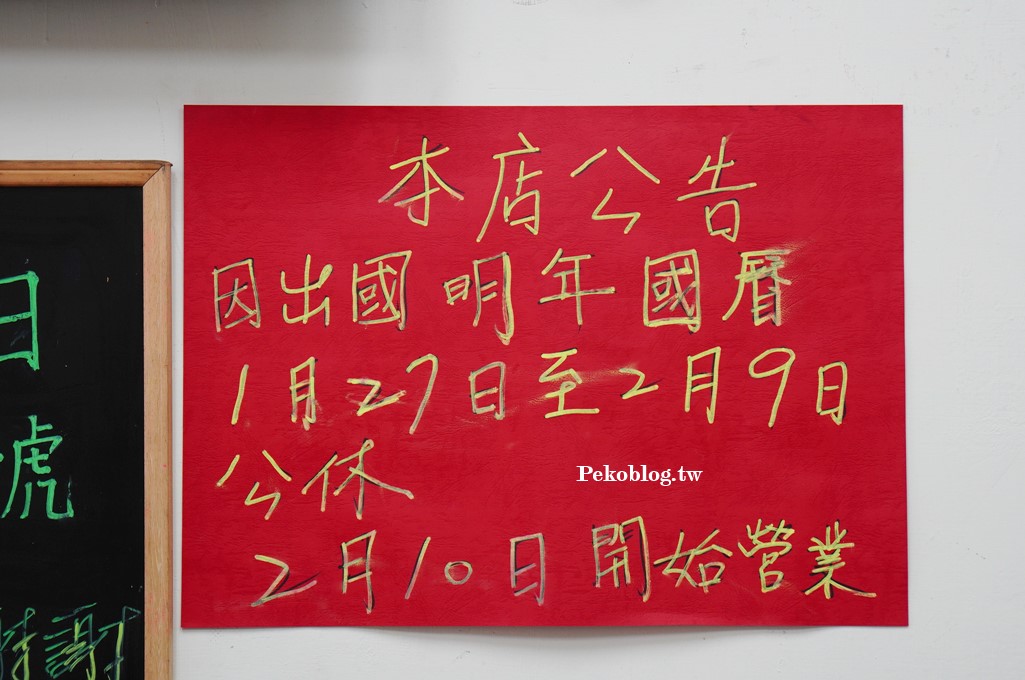 本店公告
因出國明年國曆
1月27日至2月9日
公休
2月10日開始營業
Pekoblog.tw
日
號
謝